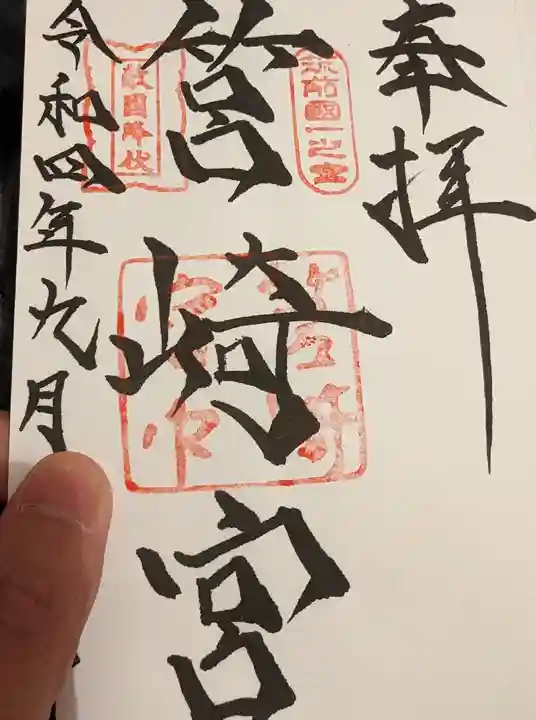 奉拝
筑前國一之宮
筥崎宮
敵國降伏
令和四年九月